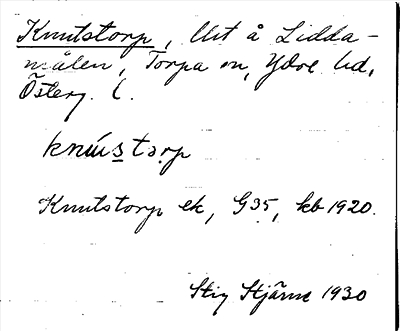 Knutstorp, Ut å Lidda-
målen, Torpa sn, Ydre hd,
Österg. l.
knústorp
Knutstorp ek, G35, kb 1920.
Stig Stjärne 1930